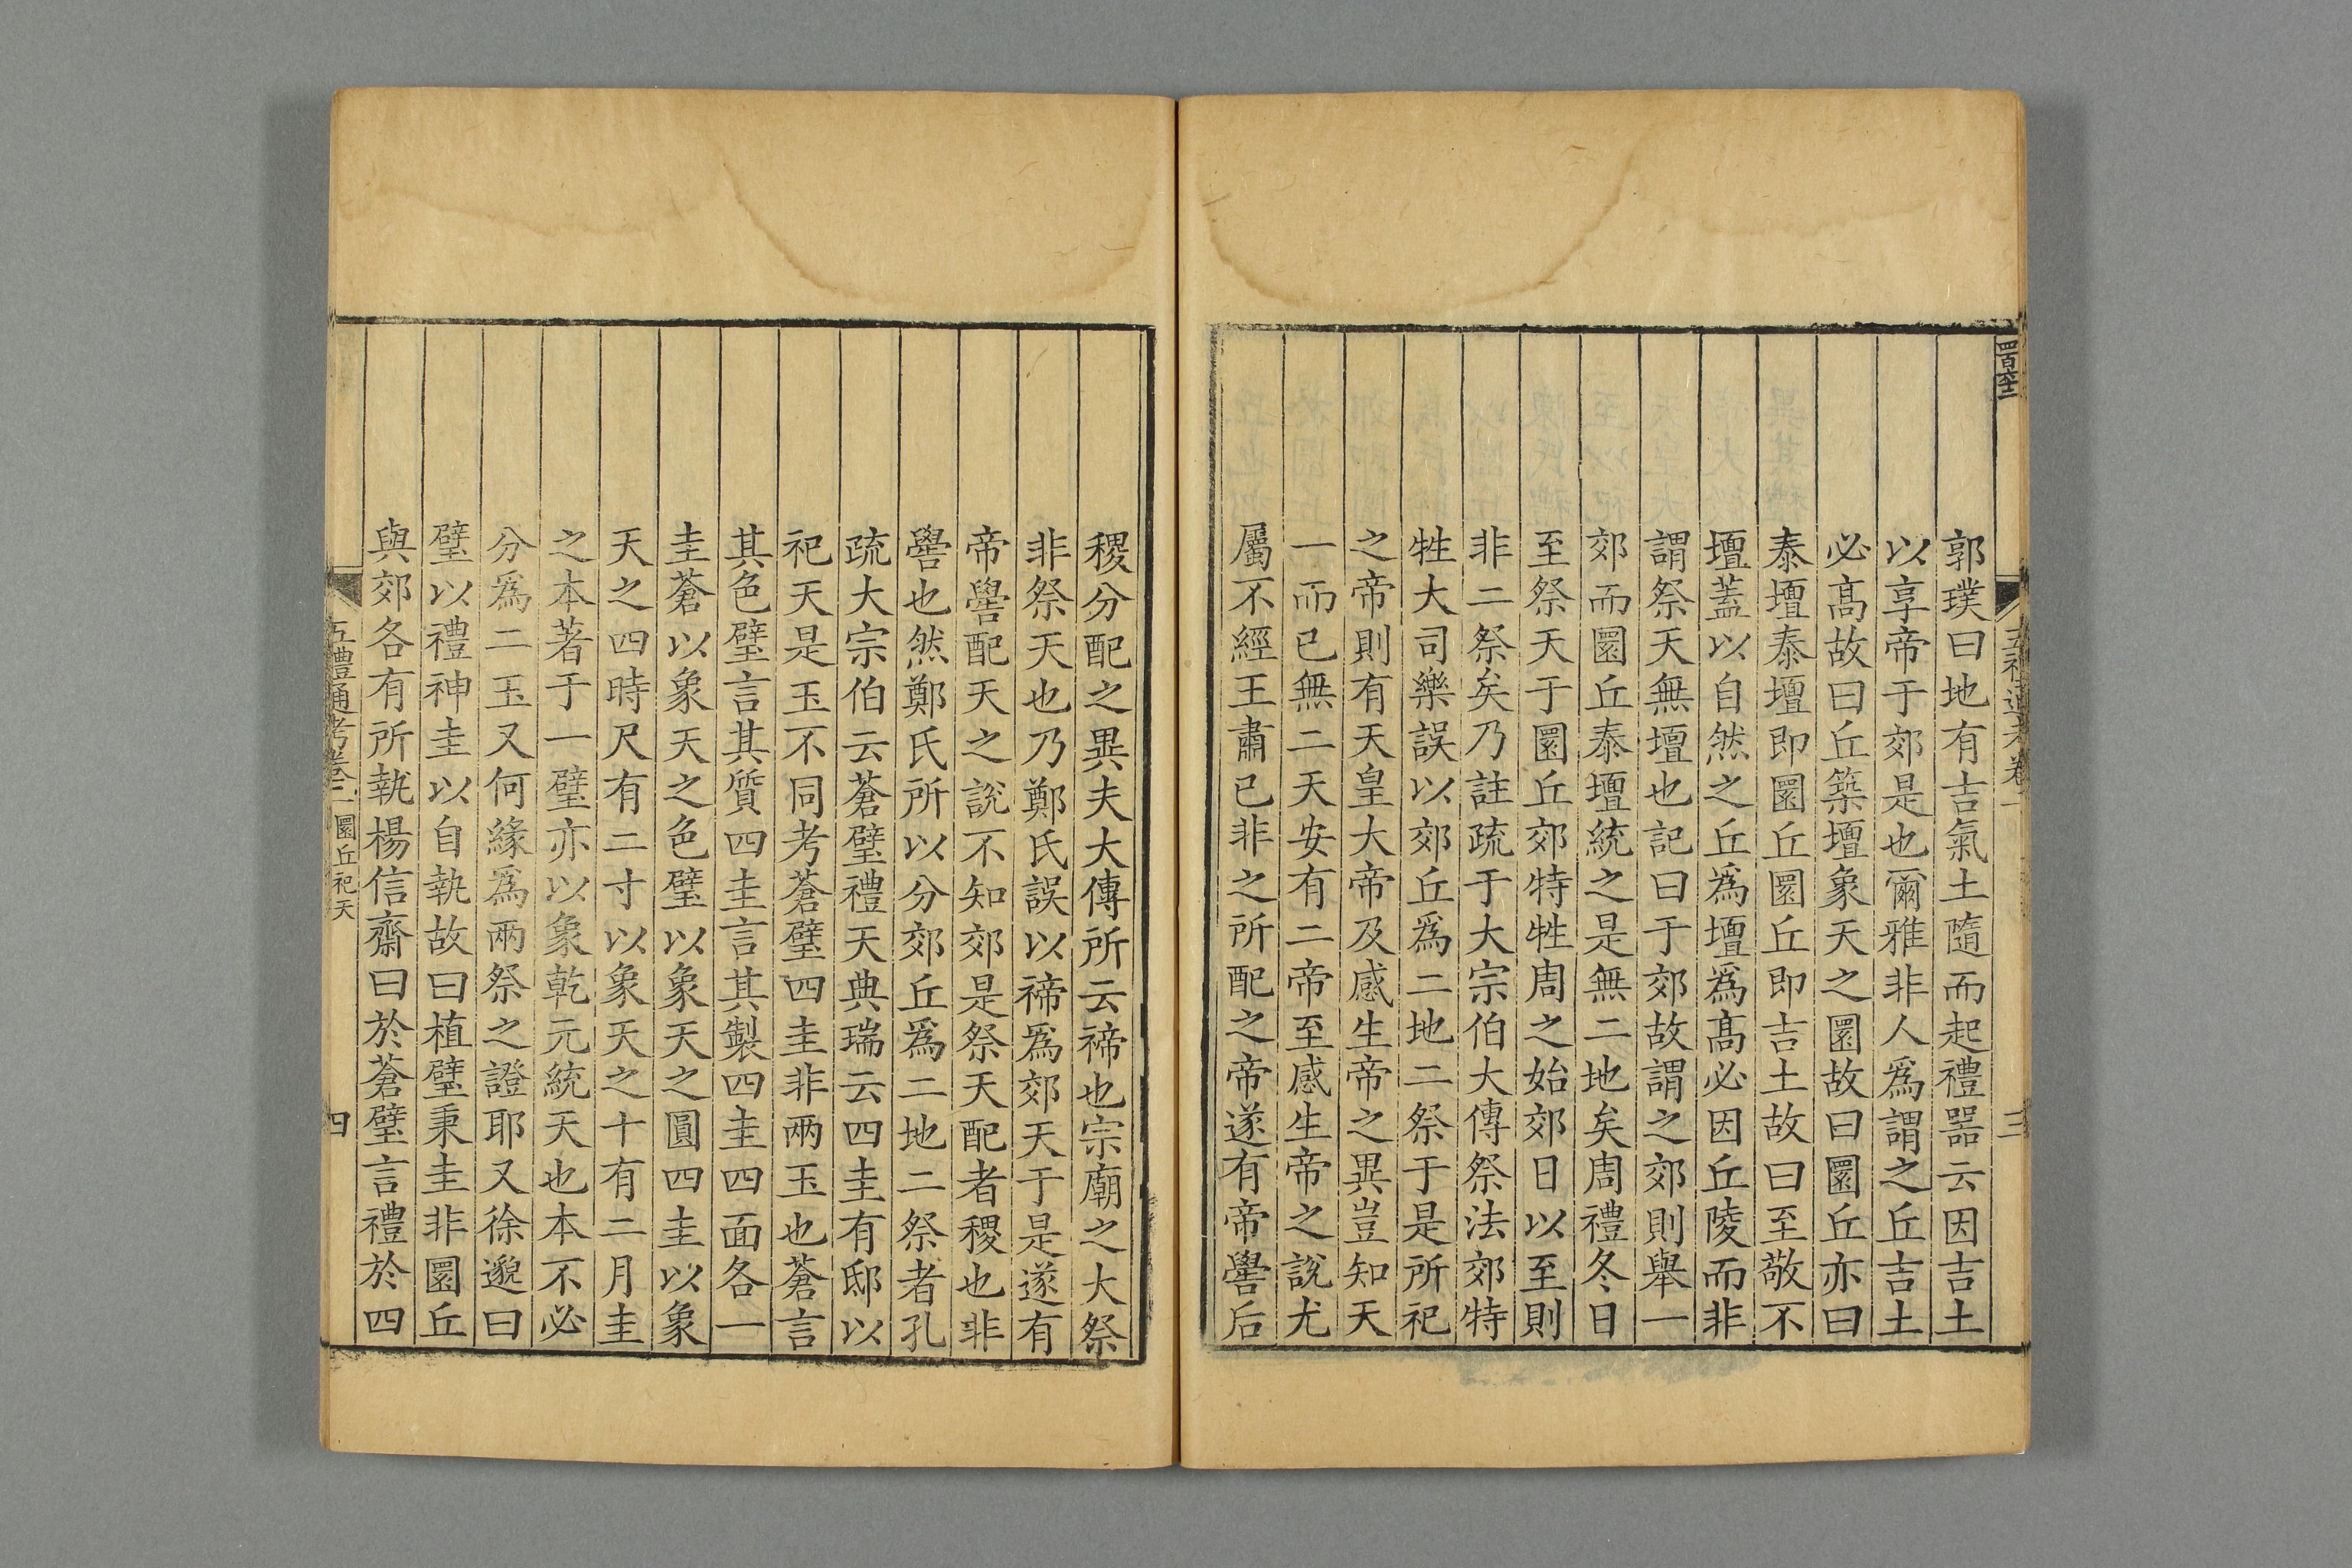 郭璞曰地有吉氣土隨而起禮器云因吉土
以享帝于郊是也爾雅非人爲謂之丘吉土
必髙故曰丘築壇象天之圜故曰圜丘亦曰
泰壇泰壇即圜丘圜丘即吉土故曰至敬不
壇蓋以自然之丘爲壇爲髙必因丘陵而非
謂祭天無壇也記曰于郊故謂之郊則舉一
郊而圜丘泰壇統之是無二地矣周禮冬日
至祭天于圜丘郊特牲周之始郊日以至則
非二祭矣乃註疏于大宗伯大傳祭法郊特
牲大司樂誤以郊丘爲二地二祭于是所祀
之帝則有天皇大帝及感生帝之異豈知天
一而已無二天安有二帝至感生帝之說尤
屬不經王肅已非之所配之帝遂有帝嚳后
稷分配之異夫大傳所云禘也宗廟之大祭
非祭天也乃鄭氏誤以禘爲郊天于是遂有
帝嚳配天之說不知郊是祭天配者稷也非
嚳也然鄭氏所以分郊丘爲二地二祭者孔
疏大宗伯云蒼璧禮天典瑞云四圭有邸以
祀天是玉不同考蒼璧四圭非兩玉也蒼言
其色璧言其質四圭言其製四圭四面各一
圭蒼以象天之色璧以象天之圓四圭以象
天之四時尺有二寸以象天之十有二月圭
之本著于一璧亦以象乾元統天也本不必
分爲二玉又何緣爲兩祭之證耶又徐邈曰
璧以禮神圭以自執故曰植璧秉圭非圜丘
與郊各有所執楊信齋曰於蒼璧言禮於四
五禮通考卷二 圜丘祀天
四